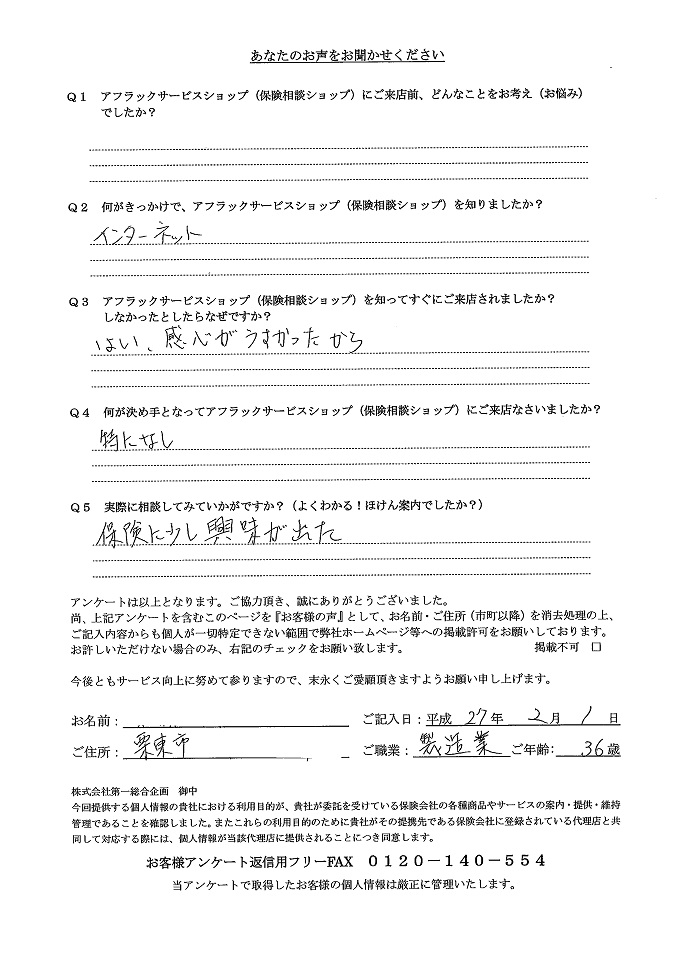 あなたのお声をお聞かせください
Q1 アフラックサービスショップ（保険相談ショップ）にご来店前、どんなことをお考え（お悩み）
でしたか？
Q2 何がきっかけで、アフラックサービスショップ（保険相談ショップ）を知りましたか？
インターネット
Q3 アフラックサービスショップ（保険相談ショップ）を知ってすぐにご来店されましたか？
しなかったとしたらなぜですか？
はい、感心がうすかったから
Q4 何が決め手となってアフラックサービスショップ（保険相談ショップ）にご来店なさいましたか？
特になし
Q5 実際に相談してみていかがですか？（よくわかる！ほけん案内でしたか？）
保険に少し興味が出た
アンケートは以上となります。ご協力頂き、誠にありがとうございました。
尚、上記アンケートを含むこのページを『お客様の声』として、お名前・ご住所（市町以降）を消去処理の上、
ご記入内容からも個人が一切特定できない範囲で弊社ホームページ等への掲載許可をお願いしております。
お許しいただけない場合のみ、右記のチェックをお願い致します。 掲載不可 □
今後ともサービス向上に努めて参りますので、末永くご愛顧頂きますようお願い申し上げます。
お名前： ご記入日：平成 27年 2月 1日
ご住所： 栗東市 ご職業： 製造業 ご年齢： 36歳
株式会社第一総合企画 御中
今回提供する個人情報の貴社における利用目的が、貴社が委託を受けている保険会社の各種商品やサービスの案内・提供・維持
管理であることを確認しました。またこれらの利用目的のために貴社がその提携先である保険会社に登録されている代理店と共
同して対応する際には、個人情報が当該代理店に提供されることにつき同意します。
お客様アンケート返信用フリーFAX 0120－140－554
当アンケートで取得したお客様の個人情報は厳正に管理いたします。